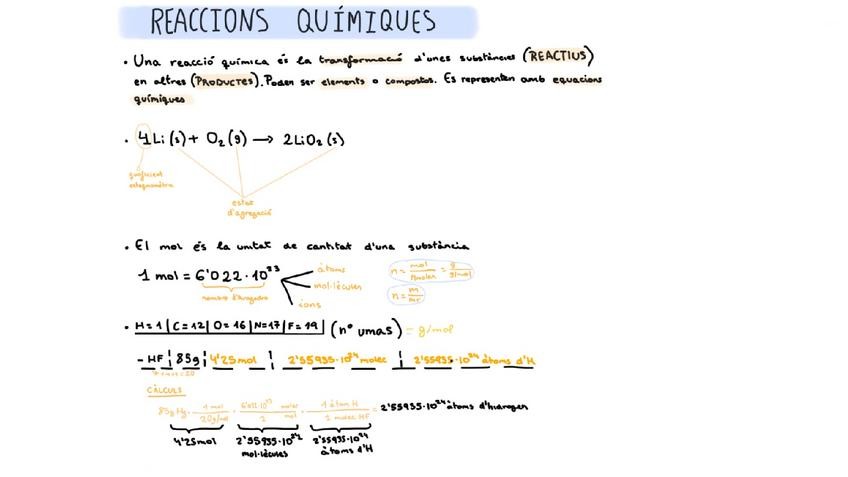 REACCIONS QUÍMIQUES
• Una reacció química és la transformació d'unes substàncies (REACTIUS)
en altres (PRODUCTES). Poden ser elements o compostos. Es representen amb equacions
químiques
• 4Li (s) + O₂ (g) → 2LiO₂ (s)
estat
d'agregació
• El mol és la unitat de cantitat d'una substància
1 mol = 6'022·10²³
àtoms
mol·lècules
ions
nombre d'Avogadro
n = m/mr
• H=1 | C=12 | O=16 | N=17 | F=19 | (nº umas) = g/mol
- HF | 85g | 4'25mol | 2'55935·10²⁴ molec | 2'55935·10²⁴ àtoms d'H
CÀLCULS
85g Hg · 1 mol / 20g/mol · 6'022·10²³ molec / 1 mol · 1 àtom H / 1 molec HF = 2'55935·10²⁴ àtoms d'hidrogen
4'25mol 2'55935·10²⁴ 2'55935·10²⁴
mol·lècules àtoms d'H